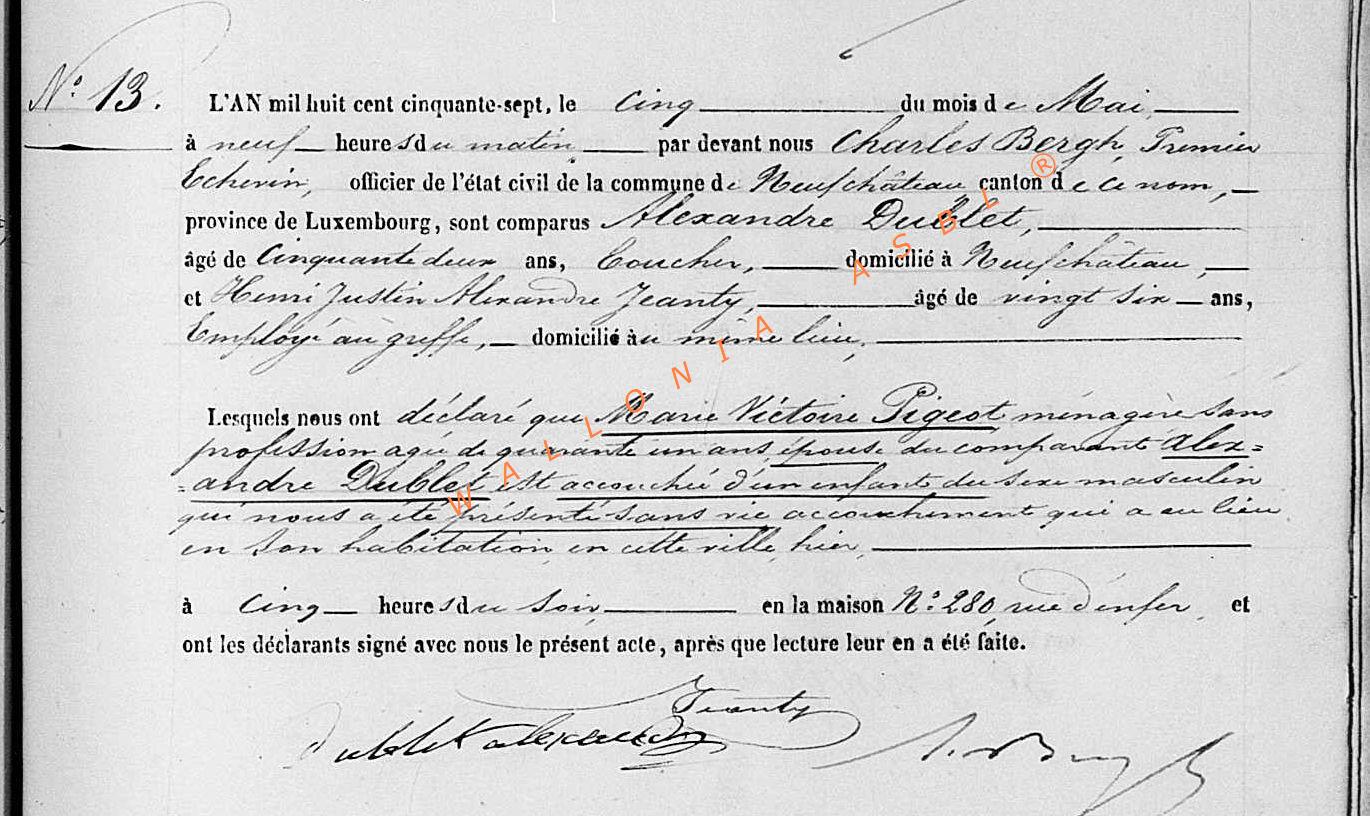 N° 13.
L'AN mil huit cent cinquante-sept, le Cinq du mois de Mai,
à neuf heures du matin, par devant nous Charles Bergh, Premier
Echevin, officier de l'état civil de la commune de Neufchâteau canton de ce nom,
province de Luxembourg, sont comparus Alexandre Dublet,
âgé de Cinquante deux ans, boucher, domicilié à Neufchâteau,
et Henri Justin Alexandre Jeanty, âgé de vingt six ans,
Employé au greffe, domicilié au même lieu,
Lesquels nous ont déclaré que Marie Victoire Pigeot ménagère sans
profession agée de quarante un ans, épouse du comparant Alex=
=andre Dublet est accouchée d'un enfant du sexe masculin
qui nous a été présenté sans vie accouchement qui a eu lieu
en son habitation, en cette ville, hier,
à Cinq heures du soir, en la maison N° 280, rue d'enfer, et
ont les déclarants signé avec nous le présent acte, après que lecture leur en a été faite.
Jeanty
Dublet alexandre
WALLONIA ASBL ®